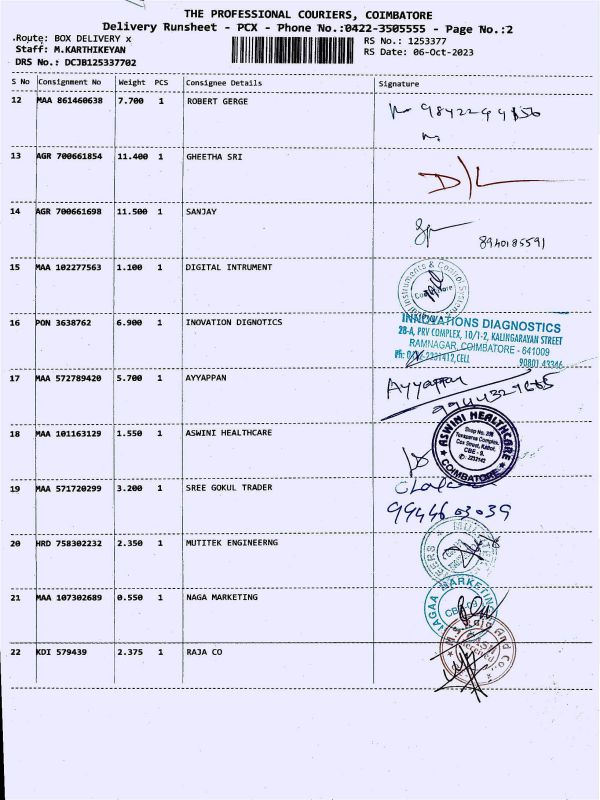 THE PROFESSIONAL COURIERS, COIMBATORE
Delivery Runsheet - PCX - Phone No.:0422-3505555 - Page No.:2
.Route: BOX DELIVERY x
RS No.: 1253377
Staff: M.KARTHIKEYAN
RS Date: 06-Oct-2023
DRS No.: DCJB125337702
S No Consignment No Weight PCS Consignee Details Signature
12 MAA 861460638 7.700 1 ROBERT GERGE
13 AGR 700661854 11.400 1 GHEETHA SRI D/L
14 AGR 700661698 11.500 1 SANJAY
8940185591
15 MAA 102277563 1.100 1 DIGITAL INTRUMENT
16 PON 3638762 6.900 1 INOVATION DIGNOTICS
INNOVATIONS DIAGNOSTICS
28-A, PRV COMPLEX, 10/1-2, KALINGARAYAN STREET
RAMNAGAR, COIMBATORE - 641009
Ph: 2231412, CELL 90801 43346
17 MAA 572789420 5.700 1 AYYAPPAN Ayyappan
18 MAA 101163129 1.550 1 ASWINI HEALTHCARE
ASWINI HEALTHCARE
CBE - 9.
COIMBATORE
19 MAA 571720299 3.200 1 SREE GOKUL TRADER
99446 03039
20 HRD 758302232 2.350 1 MUTITEK ENGINEERNG
21 MAA 107302689 0.550 1 NAGA MARKETING
22 KDI 579439 2.375 1 RAJA CO